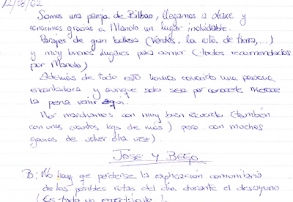 12/08/02
Somos una pareja de Bilbao, llegamos a
conocimos gracias a Manolo un lugar inolvidable.
Parajes de gran belleza (Verdes, la
y muy buenos lugares para comer (todos recomendados
por Manolo)
Además de todo esto hemos conocido una persona
encantadora y aunque solo sea por conocerle merece
la pena venir aquí.
Nos marchamos con muy buen recuerdo (también
con unos cuantos kgs de más) pero con muchas
ganas de volver otra vez.
José y
No hay que perderse la explicación
de las posibles rutas del día durante el desayuno
(Es todo un espectáculo!